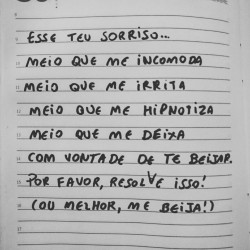 ESSE TEU SORRISO...
MEIO QUE ME INCOMODA
MEIO QUE ME IRRITA
MEIO QUE ME HIPNOTIZA
MEIO QUE ME DEIXA
COM VONTADE DE TE BEIJAR.
POR FAVOR, RESOLVE ISSO!
(OU MELHOR, ME BEIJA!)